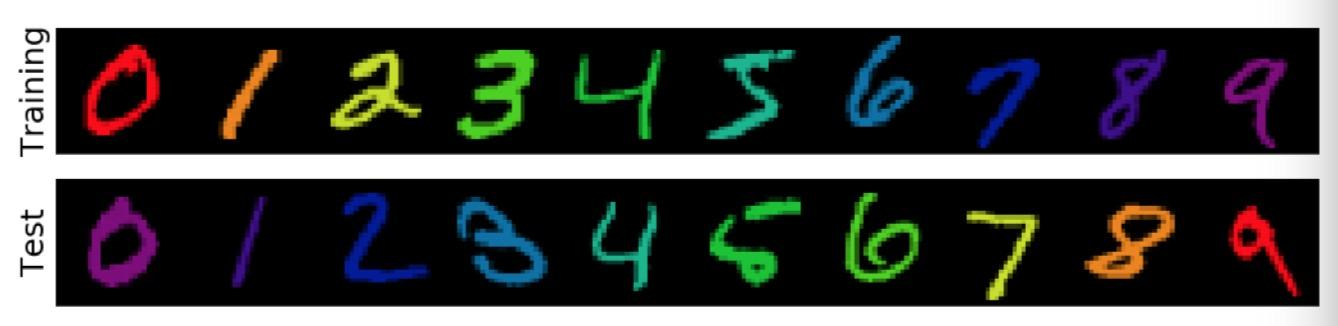 Training
0 1 2 3 4 5 6 7 8 9
Test
0 1 2 3 4 5 6 7 8 9